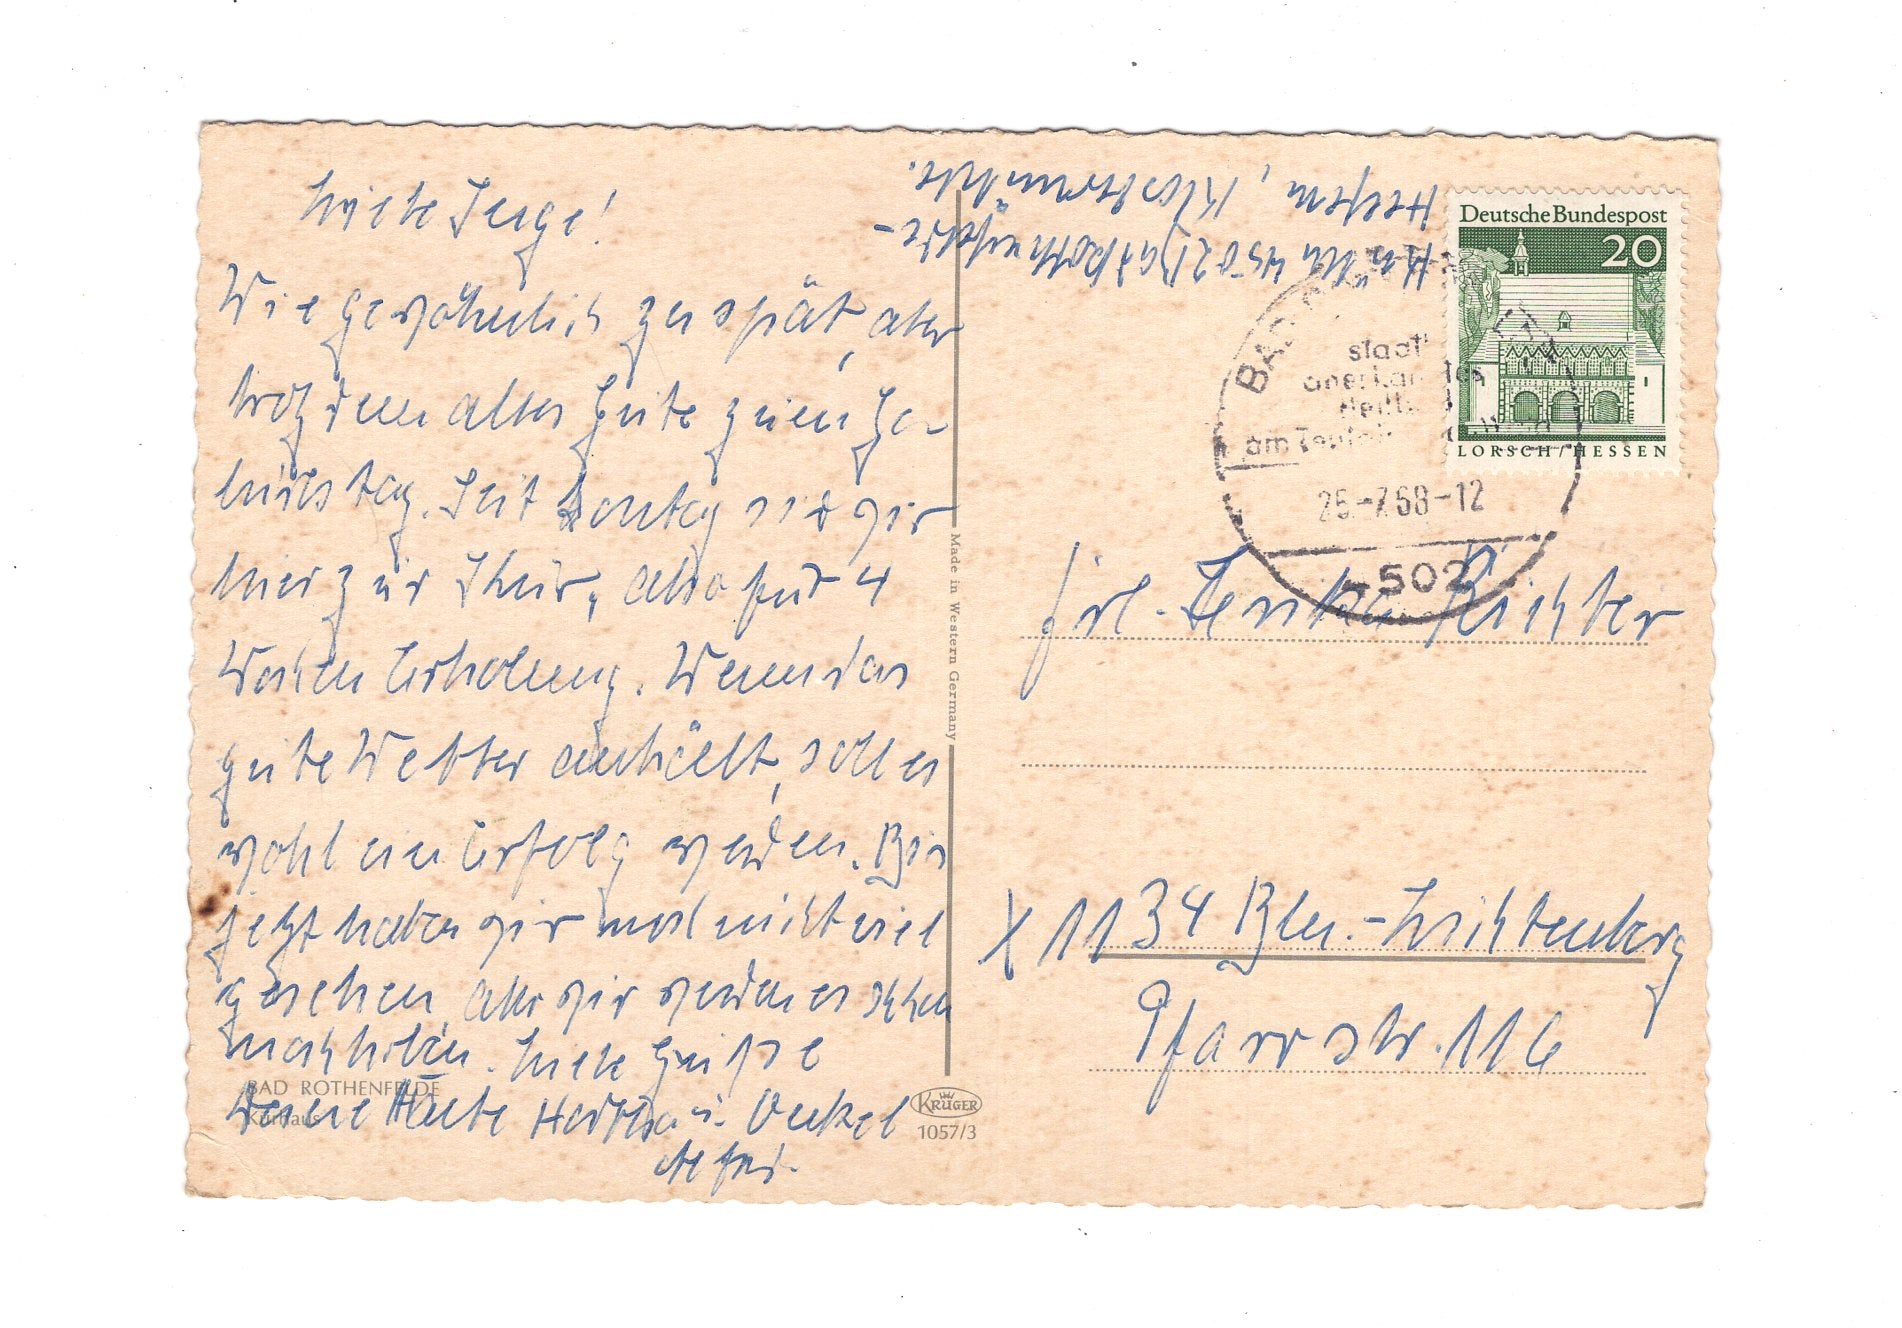 Wie gewöhnlich zu spät, aber
trotzdem alles Gute zum Ge-
burtstag. Seit Montag sind wir
hier zur Kur, also für 4
Wochen Erholung. Wenn das
gute Wetter anhält, soll es
wohl ein Erfolg werden. Bis
jetzt haben wir noch nicht viel
gesehen, aber wir werden es schon
nachholen. Viele Grüße
Deine Tante Hertha u. Onkel
BAD ROTHENFELDE
Kurhaus
KRÜGER
1057/3
Made in Western Germany
4502 Bad Rothenfelde-
Helfern, Klostermühle.
Deutsche Bundespost
20
LORSCH/HESSEN
BAD
staatl.
anerkanntes
Heilbad
am Teutoburger Wald
25.-7.68-12
502
Frl. Richter
X 1134 Bln.-Lichtenberg
Pfarrstr. 116